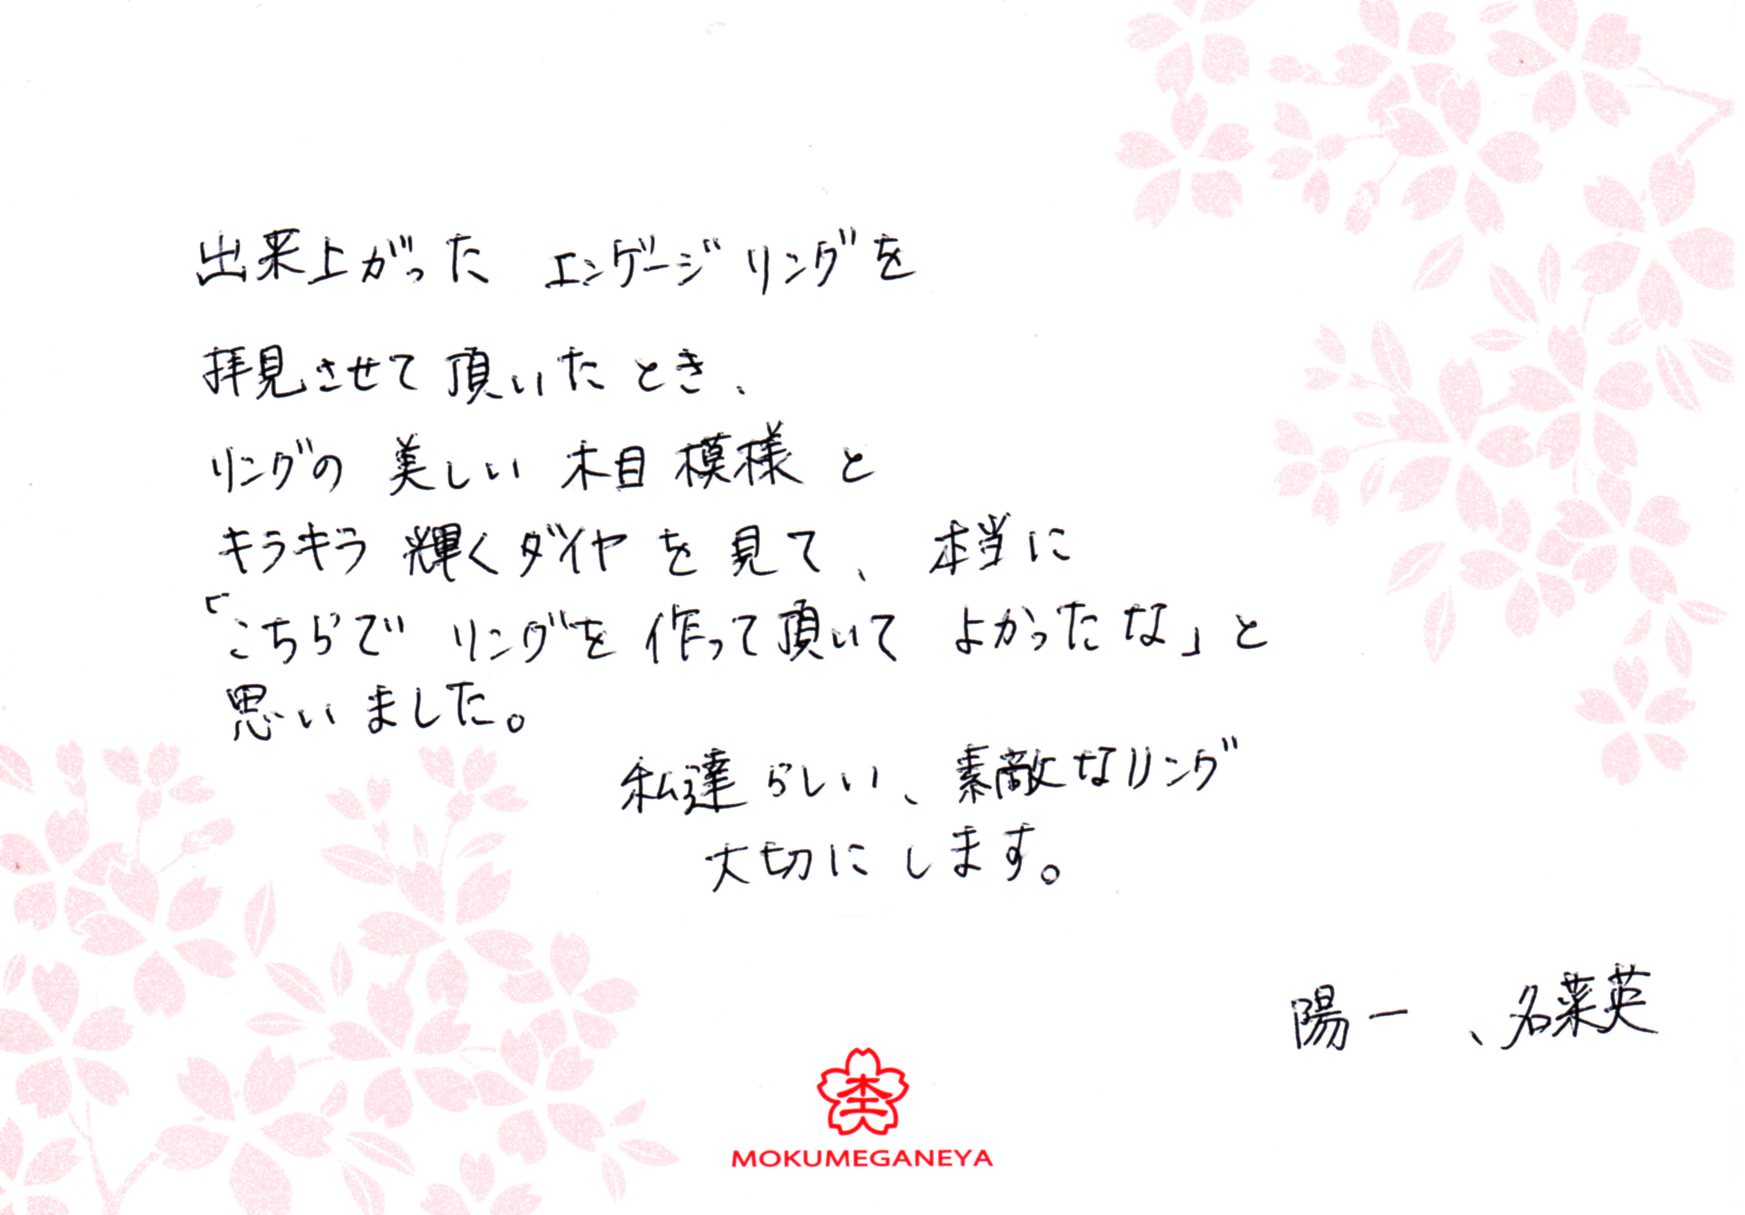 出来上がった エンゲージリングを
拝見させて頂いたとき、
リングの 美しい 木目模様と
キラキラ 輝くダイヤを見て、本当に
「こちらで リングを作って頂いて よかったな」と
思いました。
私達らしい、素敵なリング
大切にします。
陽一 、名菜英
MOKUMEGANEYA